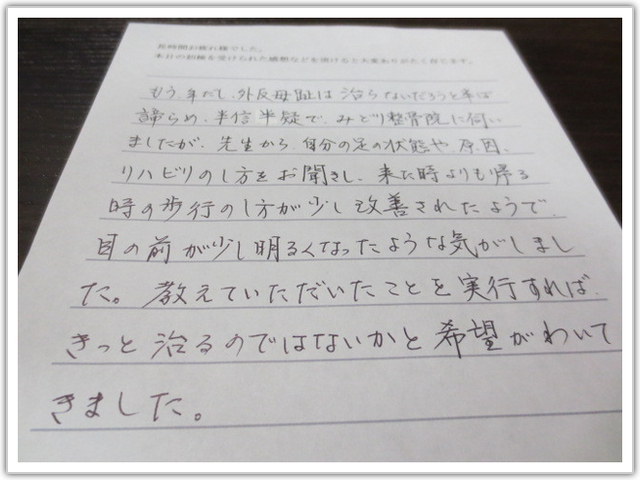 長時間お疲れ様でした。
本日の初検を受けられた感想などを頂けると大変ありがたく存じます。
もう、年だし、外反母趾は治らないだろうと半ば
諦らめ、半信半疑で、みどり整骨院に伺い
ましたが、先生から、自分の足の状態や、原因、
リハビリのし方をお聞きし、来た時よりも帰る
時の歩行のし方が少し改善されたようで、
目の前が少し明るくなったような気がしまし
た。教えていただいたことを実行すれば、
きっと治るのではないかと希望がわいて
きました。